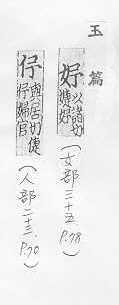 玉篇
好 以諸切
婕妤
(女部三十五
P.78)
伃 與居切倢
伃婦官
(人部二十三
P.70)